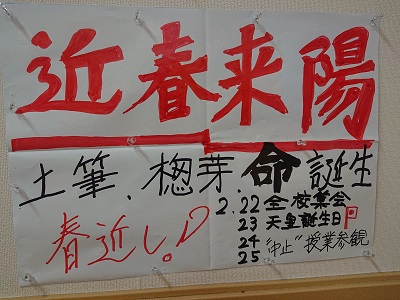 近春来陽
土筆、楤芽、命誕生
春近し。
2.22 全校集会
23 天皇誕生日
24 "中止"授業参観
25